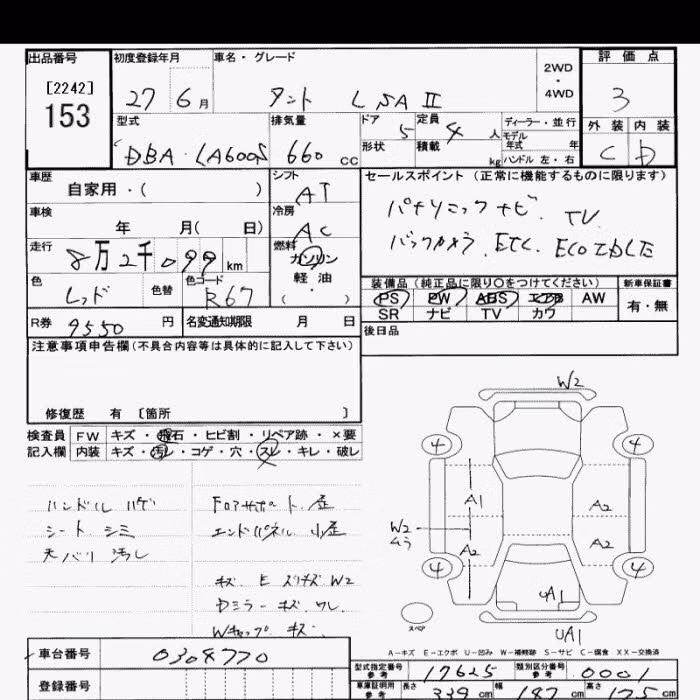 出品番号 初度登録年月 車名・グレード 2WD・4WD 評価点
[2242]
153
27 6月 タント L SA II 3
型式 排気量 ドア 5 定員 4人 ディーラー・並行 外装 内装
モデル年式 年
DBA・LA600S 660cc 形状 積載 kg ハンドル 左・右 C D
車歴 自家用・( ) シフト AT セールスポイント(正常に機能するものに限ります)
車検 年 月( 日) 冷房 AC パナソニックナビ. TV
走行 8万2千099km 燃料 ガソリン バックカメラ. ETC. ECO IDLE
軽油
・( )
色 レッド 色替 色コード R67 装備品(純正品に限り○をつけてください) 新車保証書
PS PW ABS エアB AW 有・無
SR ナビ TV カワ
R券 9550円 名変通知期限 月 日 後日品
注意事項申告欄(不具合内容等は具体的に記入して下さい)
修復歴 有 [箇所 ]
検査員 FW キズ・飛石・ヒビ割・リペア跡・×要
記入欄 内装 キズ・汚レ・コゲ・穴・スレ・キレ・破レ
W2
4 4
ハンドル ハゲ
シート シミ
天バリ 汚レ
Fロアサポート.歪
エンドパネル 小歪
キズ E スリキズ W2
Dミラーキズ ワレ.
Wキャップ キズ.
A1 A2
W2
ムラ
A2 A2
4 4
UA1
スペア
UA1
A-キズ E-エクボ U-凹み W-補修跡 S-サビ C-腐食 XX-交換済
車台番号 0304770
登録番号
型式指定番号 参考 17625 類別区分番号 参考 0001
車庫証明用 参考 長さ 339cm 幅 147cm 高さ 175cm